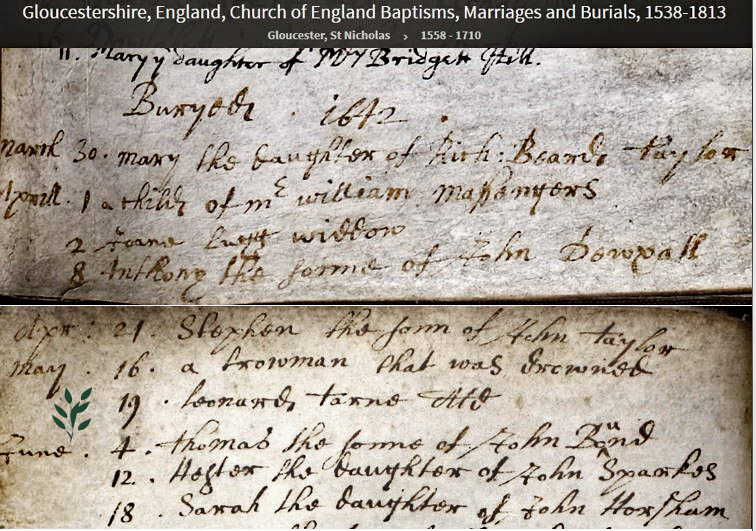 Gloucestershire, England, Church of England Baptisms, Marriages and Burials, 1538-1813
Gloucester, St Nicholas › 1558 - 1710
11. Mary ye daughter of Mr Bridgett Hill.
Buryed. 1642.
March 30. mary the daughter of Rich: Beard, taylor
Aprill. 1 a child of mr william Massangers
2 Joane Lugg widdow
8 Anthony the sonne of John Dowxall
Apr: 21. Stephen the sonn of John taylor
may. 16. a trowman that was drowned
19. leonard, tarne
June. 4. thomas the sonne of John Bond
12. Hester the daughter of John Sparkes
18. Sarah the daughter of John Horsham